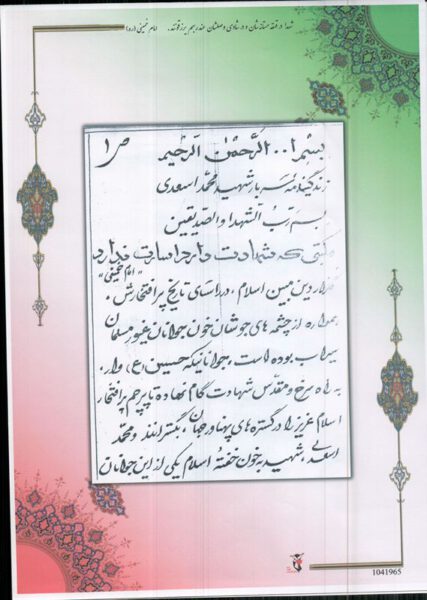 شهدا در قهقهه مستانه‌شان و در شادی وصولشان عند ربهم یرزقونند. امام خمینی (ره)
ص ۱
بسم ا... الرحمن الرحیم
زندگینامه سرباز شهید محمد اسعدی
بسم رب الشهدا و الصدیقین
ملتی که شهادت دارد اسارت ندارد
"امام خمینی"
دین مبین اسلام، در راستای تاریخ پر افتخارش،
همواره از چشمه های جوشان خون جوانان غیور مسلمان
سیراب بوده است، جوانانیکه حسین (ع) وار،
به راه سرخ و مقدس شهادت گام نهاده تا پرچم پر افتخار
اسلام عزیز را در گستره های پهناور جهان، بگسترانند و محمد
اسعدی، شهید به خون خفتهٔ اسلام یکی از این جوانان
1041965